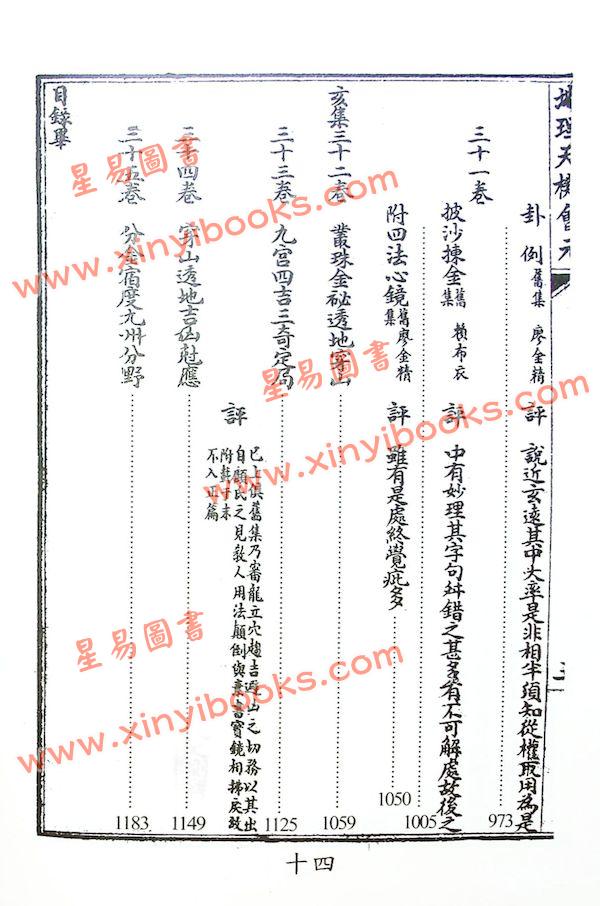 地理天機會元
卦例 舊集 廖金精 評 說近玄遠其中大率是非相半須知從權取用為是 973
三十一卷
披沙揀金 舊集 賴布衣 評 中有妙理其字句舛錯之甚多有不可解處故後之 1005
附四法心鏡 舊集 廖金精 評 雖有是處終覺疵多 1050
亥集三十二卷 叢珠金秘透地穿山 1059
三十三卷 九宮四吉三奇定局 1125
評 已上俱舊集乃審龍立穴趨吉避凶之切務以其出
自顧氏之見教人用法顛倒與 書寶鏡相拂戾故
附 于末
不入正篇
三十四卷 穿山透地吉凶尅應 1149
三十五卷 分金宿度九州分野 1183
目錄畢
十四
星易圖書
www.xinyibooks.com
星易圖書
www.xinyibooks.com
星易圖書
www.xinyibooks.com